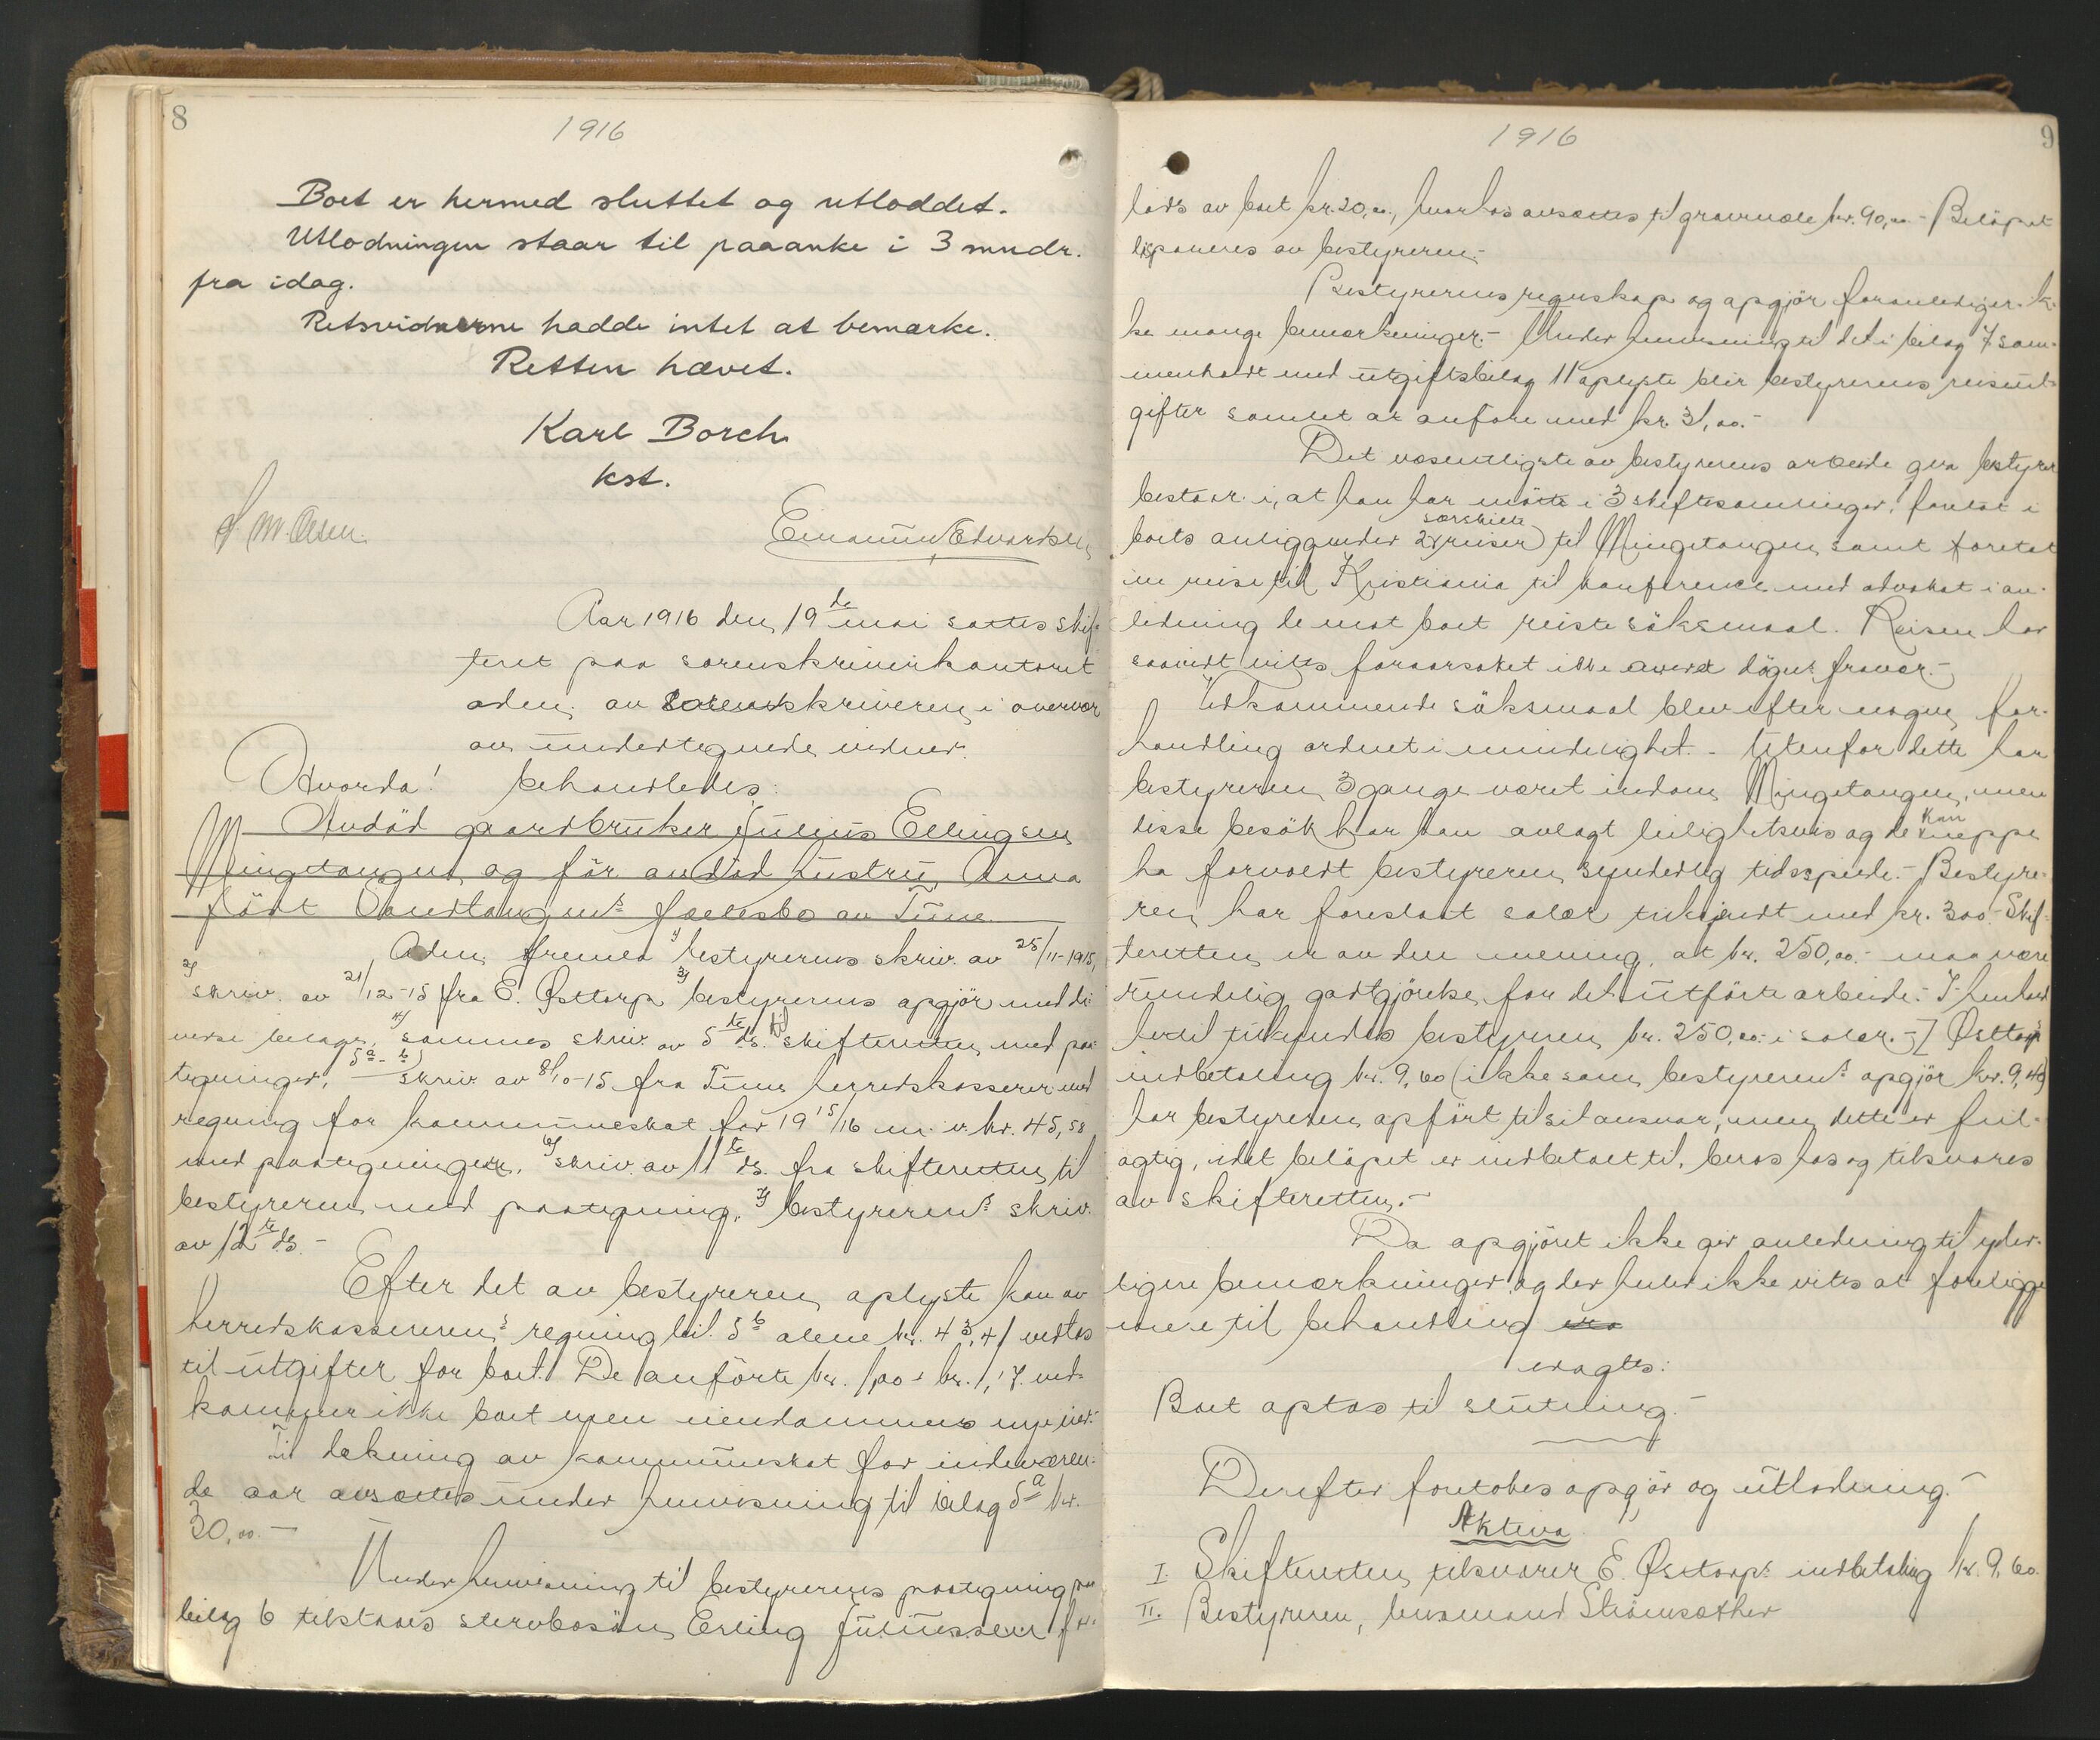 8
1916
Boet er hermed sluttet og utloddet.
Utlodningen staar til paaanke i 3 mndr.
fra idag.
Retsvidnerne hadde intet at bemærke.
Retten hævet.
Karl Borch
kst.
Emanuel Edvardsen
Aar 1916 den 19de mai sattes skif-
teret paa sorenskriverkontoret
av sorenskriveren i overvær
av undertegnede vidner.
Hvorda! behandledes:
Avdød gaardbruker Julius Ellingsen
Mingetangen og før avdød hustru Anna
født fællesbo av Tune.
fremla 1) bestyrerens skriv. av 25/11-1915,
2) skriv. av 21/12-15 fra E. Østtorp 3) bestyrerens opgjør med di
verse bilager, 4) sammes skriv. av 5te ds. til skifteretten med paa-
tegninger, 5a-b) skriv av 8/10-15 fra Tune herredskasserer med
regning for kommuneskat for 1915/16 m. v. kr. 45,58
med paategninger. 6) skriv. av 11te ds. fra skifteretten til
bestyreren med paategning, 7) bestyrerens skriv.
av 12te ds.-
Efter det av bestyreren oplyste kan av
herredskassererens regning bil. 5b alene kr. 43,41 vedtas
til utgifter for boet. De anførte kr. 1,00 + kr. 1,17 ved-
kommer ikke boet men eiendommens nye eier.-
Til dækning av kommuneskat for indeværen-
de aar avsættes under henvisning til bilag 5a kr.
30,00.-
Under henvisning til bestyrerens paategning paa
bilag 6 tilstaaes stervbosøn Erling Juliussen for
9
1916
lods av boet kr. 20,00, hvorhos avsættes til gravmæle kr. 90,00.- Beløpet
disponeres av bestyreren.-
Bestyrerens regnskap og opgjør foranlediger ik-
ke mange bemerkninger.- Under henvisning til det i bilag 7 sam-
menholdt med utgiftsbilag 11 oplyste blir bestyrerens reiseut-
gifter samlet at anføre med kr. 31,00.-
Det væsentligste av bestyrerens arbeide qva bestyrer
bestaar i, at han har møtt i 3 skiftesamlinger, foretat i
boets anliggender 2 særskilte reiser til Mingetangen samt foretat
en reise til Kristiania til konference med advokat i an-
ledning de mot boet reiste søksmaal. Reisen har
saavidt vites foraarsaket ikke døgns fravær.-
Vedkommende søksmaal blev efter nogen for-
handling ordnet i mindelighet.- Utenfor dette har
bestyreren 3 gange været indom Mingetangen, men
disse besøk har han avlagt leilighetsvis og de kan neppe
ha forvoldt bestyreren synderlig tidsspilde.- Bestyre-
ren har foreslaat salær tilkjendt med kr. 300.- Skif-
teretten er av den mening, at kr. 250,00.- maa være
rundelig godtgjørelse for det utførte arbeide.- I henhold
hertil tilkjendes bestyreren kr. 250,00.- i salær.- Østtorps
indbetaling kr. 9,60 (ikke som bestyrerens opgjør kr. 9,40)
har bestyreren opført til sit ansvar, men dette er feil-
agtig, idet beløpet er indbetalt til, beros hos og tilsvares
av skifteretten.-
Da opgjøret ikke gir anledning til yder-
ligere bemerkninger og der heller ikke vites at foreligge
mere til behandling
eragtes:
Boet optas til slutning.-
Derefter foretokes opgjør og utlodning.-
Aktiva
I. Skifteretten tilsvarer E. Østtorps indbetaling kr. 9,60.
II. Bestyreren, lensmand Strømsæther